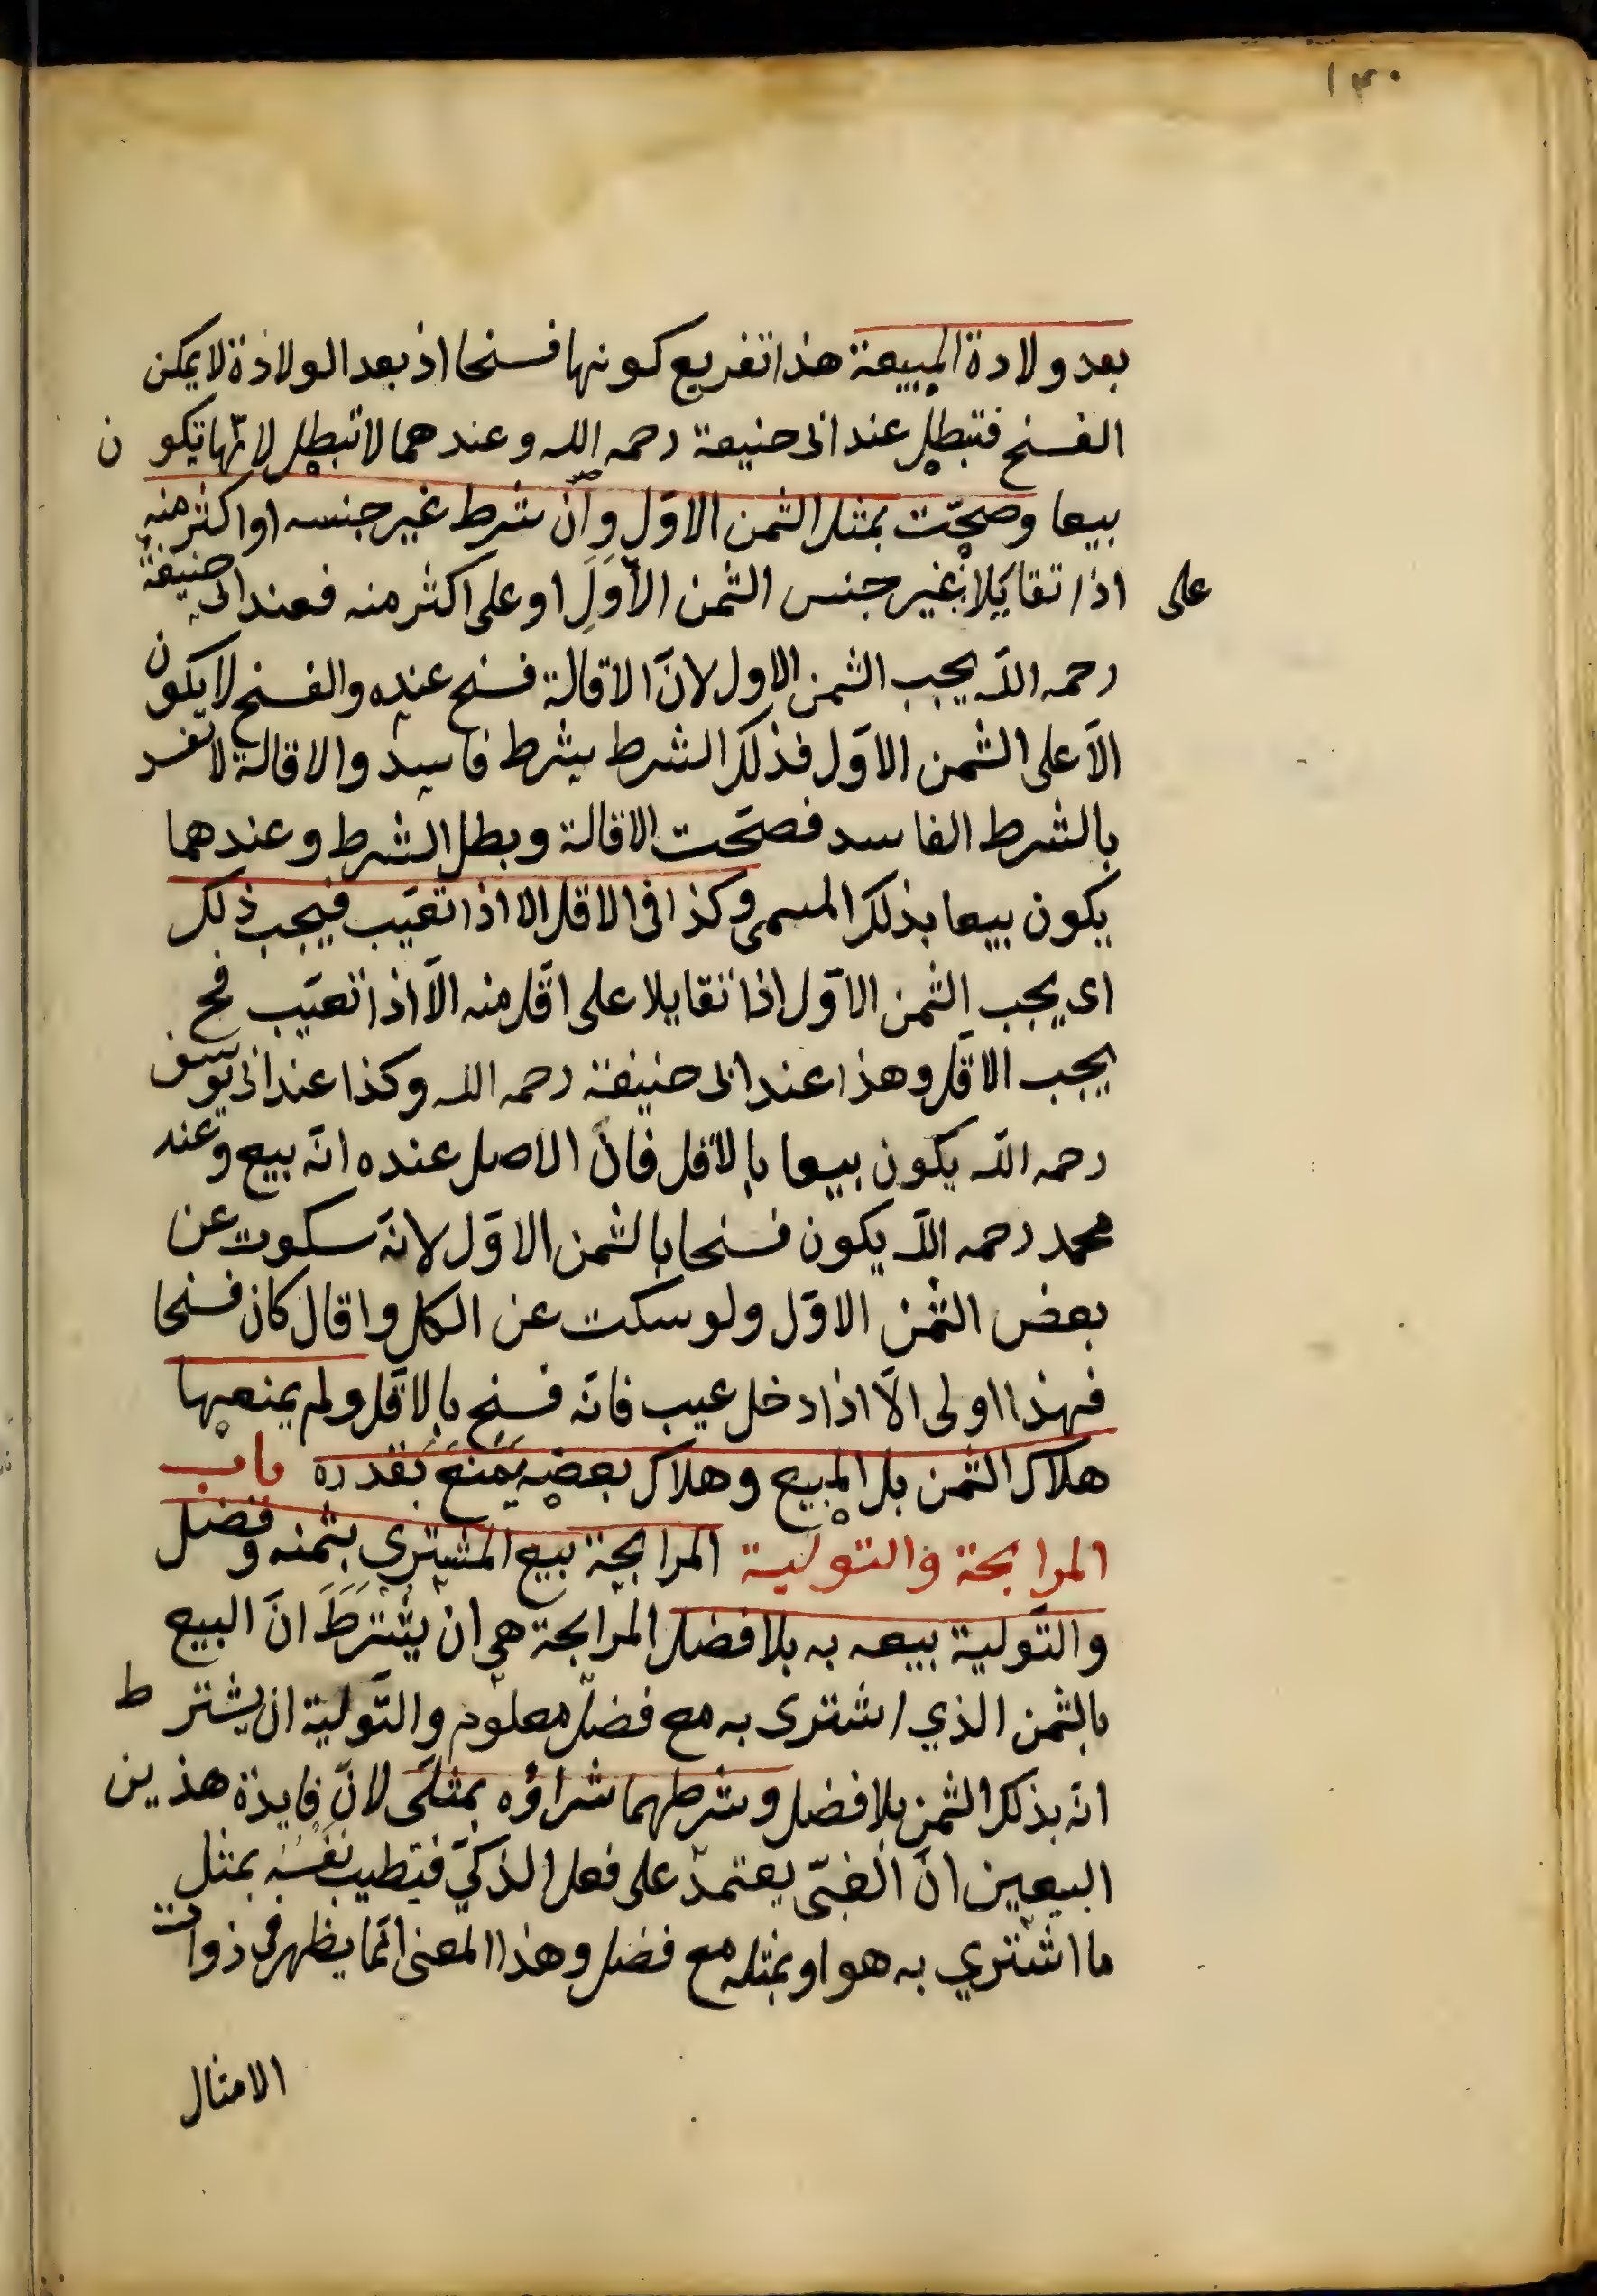 ١٣٠
بعد ولادة المبيعة هذا تفريع كونها فسخا اذ بعد الولادة لا يمكن
الفسخ فتبطل عند ابى حنيفة رحمه الله وعندهما لا تبطل لانّها تكون
بيعا وصحّت بمثل الثمن الاوّل وان شرط غير جنسه او اكثر منه
على
اذا تقايلا بغير جنس الثمن الأوّلِ او على اكثر منه فعند ابى حنيفة
رحمه اللّه يجب الثمن الاول لانّ الاقالة فسخ عنده والفسخ لا يكون
الّا على الثمن الاوّل فذلك الشرط شرط فاسد والاقالة لا تفسد
بالشرط الفاسد فصحّت الاقالة وبطل الشرط وعندهما
يكون بيعا بذلك المسمى وكذا فى الاقل الا اذا تعيّب فيجب ذلك
اى يجب الثمن الاوّل اذا تقايلا على اقّل منه الّا اذا تعيّب فح
يجب الاقّل وهذا عند ابى حنيفة رحمه الله وكذا عند ابى يوسف
رحمه اللّه يكون بيعا بالاقل فانّ الاصل عنده انّه بيع وعند
محمد رحمه اللّه يكون فسخا بالثمن الاوّل لانّه سكوت عن
بعض الثمن الاوّل ولو سكت عن الكل واقال كان فسخا
فهذا اولى الّا اذا دخل عيب فانّه فسخ بالاقّل ولم يمنعها
هلاك الثمن بل المبيع وهلاك بعضه يمنع بقدره باب
المرابحة والتولية المرابحة بيع المشترى بثمنه وفضل
والتّولية بيعه به بلا فضل المرابحة هى ان يشترط انّ البيع
بالثمن الذي اشترى به مع فضل معلوم والتّولية ان يشترط
انّه بذلك الثمن بلا فضل وشرطهما شراؤه بمثلّى لانّ فايدة هذين
البيعين انّ الغبّى يعتمد على فعل الذكىّ فيطيب نفسه بمثل
ما اشترى به هو او بمثله مع فضل وهذا المعنى انّما يظهر فى ذوات
الامثال